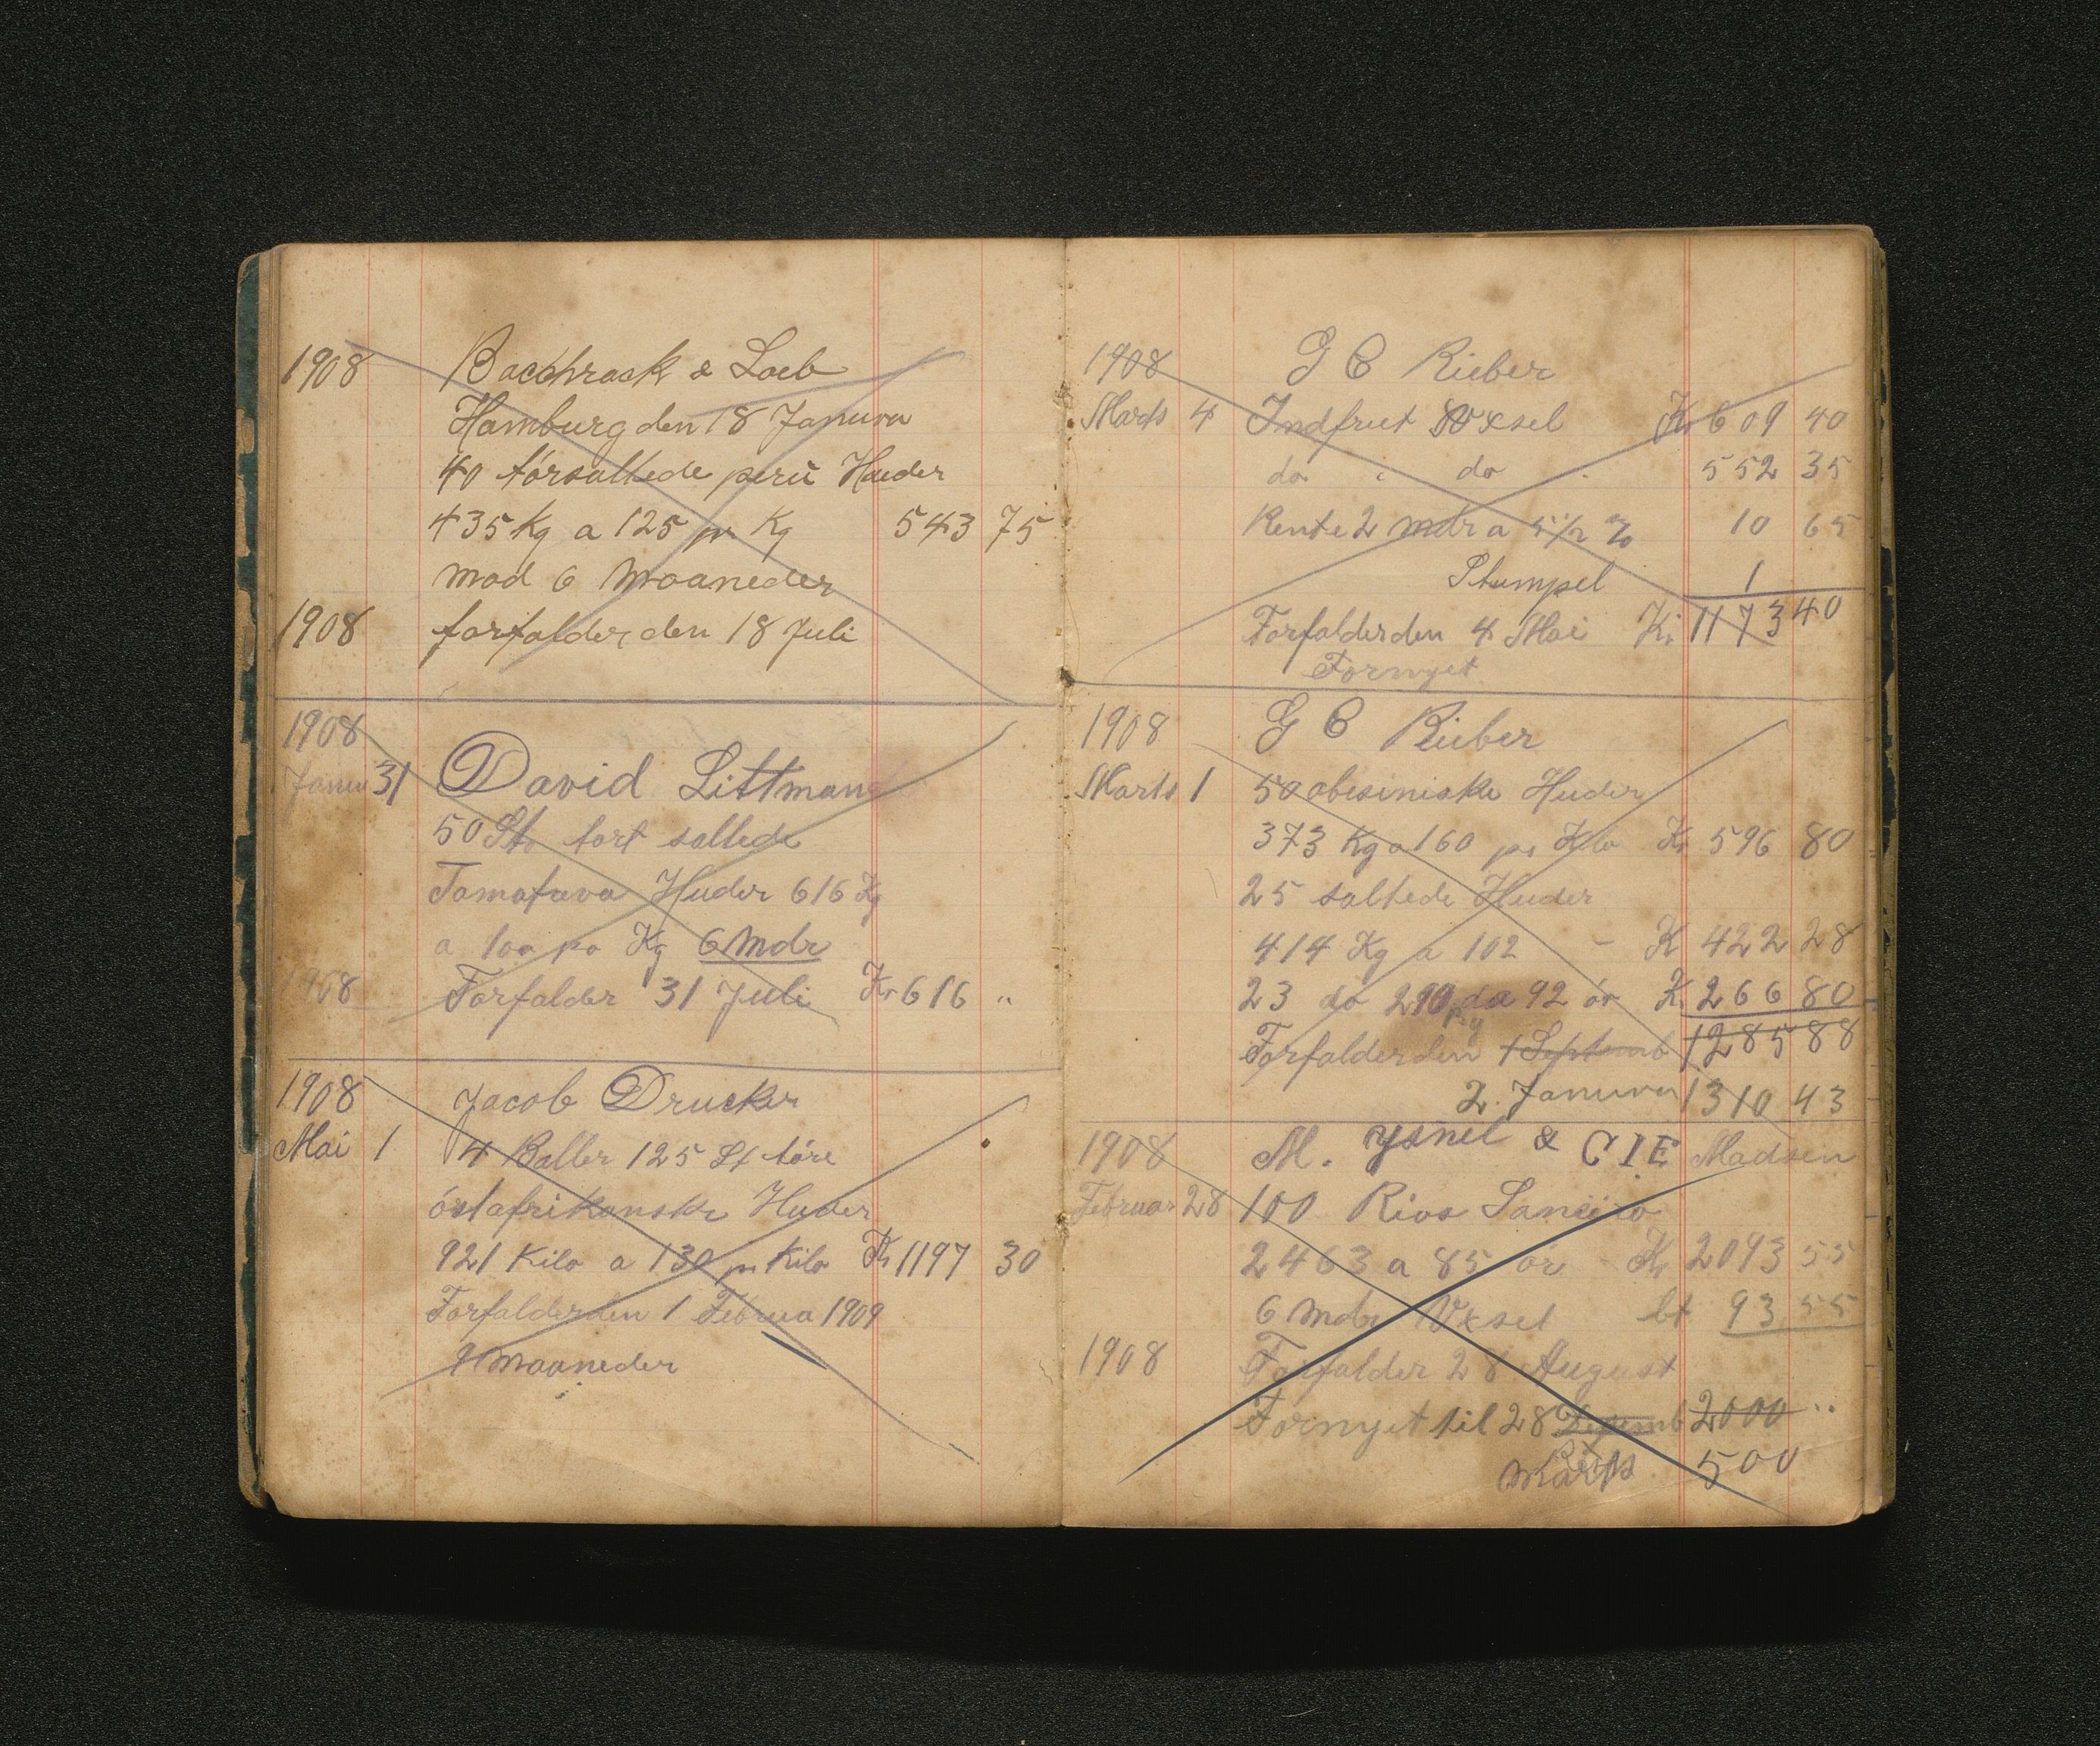 1908 Bacchrack & Loeb
Hamburg den 18 Januva
40 törsaltede perü Huder
435 Kg a 125 pr Kg 543 75
mod 6 Maaneder
1908 forfalder den 18 Juli
1908
Janu 31 David Littmann
50 St. tort saltede
Tamatava Huder 616 Kg
a 100 pr Kg 6 Mdr
1908 Forfalder 31 Juli Kr 616 "
1908 Jacob Drucker
Mai 1 4 Baller 125 St töre
östafrikanske Huder
921 Kilo a 130 pr Kilo Kr 1197 30
Forfalder den 1 Februa 1909
9 Maaneder
1908 G C Rieber
Marts 4 Indfriet Vexsel Kr 609 40
do do 552 35
Rente 2 mdr a 5 1/2 % 10 65
Stempel 1
Forfalder den 4 Mai Kr 1173 40
Fornyet
1908 G C Rieber
Marts 1 50 abesiniske Huder
373 Kg a 160 pr Kilo Kr 596 80
25 saltede Huder
414 Kg a 102 - K 422 28
23 do 290 do a 92 ör K. 266 80
Forfalder den 1 Septemb 1285 88
2. Januva 1310 43
1908 M. Ysnel & CIE Madsen
Februar 28 100 Rios
2463 a 85 ör Kr 2093 55
6 Mdr Vexsel bt 93 55
1908 Forfalder 28 August
Fornyet til 28 2000 "
Marts 500